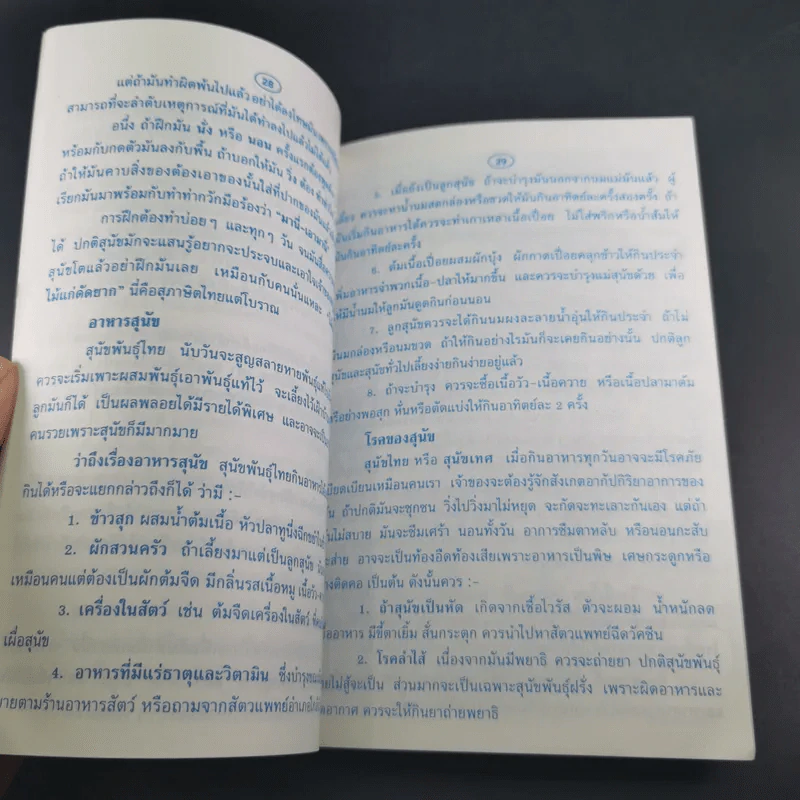 28
แต่ถ้ามันทำผิดพ้นไปแล้ว อย่าได้ลงโทษ
สามารถที่จะลำดับเหตุการณ์ที่มันได้ทำลงไปแล้วไม่ได้
อนึ่ง ถ้าฝึกมัน นั่ง หรือ นอน ครั้งแรกต้อง
พร้อมกับกดตัวมันลงกับพื้น ถ้าบอกให้มัน วิ่ง ต้อง
ถ้าให้มันคาบสิ่งของต้องเอาของนั้นใส่ที่ปากของมัน
เรียกมันมาพร้อมกับทำท่ากวักมือร้องว่า "มานี่-เอามานี่
การฝึกต้องทำบ่อยๆ และทุกๆ วัน จนมัน
ได้ ปกติสุนัขมักจะแสนรู้อยากจะประจบและเอาใจเจ้า
สุนัขโตแล้วอย่าฝึกมันเลย เหมือนกับคนนั่นแหละ
ไม้แก่ดัดยาก" นี่คือสุภาษิตไทยแต่โบราณ
อาหารสุนัข
สุนัขพันธุ์ไทย นับวันจะสูญสลายหายพันธุ์
ควรจะเริ่มเพาะผสมพันธุ์เอาพันธุ์แท้ไว้ จะเลี้ยงไว้เฝ้า
ลูกมันก็ได้ เป็นผลพลอยได้มีรายได้พิเศษ และอาจจะเป็น
คนรวยเพราะสุนัขก็มีมากมาย
ว่าถึงเรื่องอาหารสุนัข สุนัขพันธุ์ไทยกินอาหาร
กินได้หรือจะแยกกล่าวถึงก็ได้ ว่ามี :-
1. ข้าวสุก ผสมน้ำต้มเนื้อ หัวปลาทูนึ่งฉีก
2. ผักสวนครัว ถ้าเลี้ยงมาแต่เป็นลูกสุนัข
เหมือนคนแต่ต้องเป็นผักต้มจืด มีกลิ่นรสเนื้อหมู เนื้อวัว
3. เครื่องในสัตว์ เช่น ต้มจืดเครื่องในสัตว์
เผื่อสุนัข
4. อาหารที่มีแร่ธาตุและวิตามิน ซึ่งบำรุง
ขายตามร้านอาหารสัตว์ หรือถามจากสัตวแพทย์อำเภอ
29
5. เมื่อยังเป็นลูกสุนัข ถ้าจะบำรุงมันนอกจากนมแม่มันแล้ว ผู้
เลี้ยง ควรจะหาน้ำนมสดกล่องหรือขวดให้มันกินอาทิตย์ละครั้งสองครั้ง ถ้า
มันเริ่มกินอาหารได้ควรจะทำเกาเหลาเนื้อเปื่อย ไม่ใส่พริกหรือน้ำส้มให้
มันกินอาทิตย์ละครั้ง
6. ต้มเนื้อเปื่อยผสมผักบุ้ง ผักกาดเปื่อยคลุกข้าวให้กินประจำ
เพิ่มอาหารจำพวกเนื้อ-ปลาให้มากขึ้น และควรจะบำรุงแม่สุนัขด้วย เพื่อ
ให้มีน้ำนมให้ลูกมันดูดกินก่อนนอน
7. ลูกสุนัขควรจะได้กินนมผงละลายน้ำอุ่นให้กินประจำ ถ้าไม่
นมกล่องหรือนมขวด ถ้าให้กินอย่างไรมันก็จะเคยกินอย่างนั้น ปกติลูก
สุนัขและสุนัขทั่วไปเลี้ยงง่ายกินง่ายอยู่แล้ว
8. ถ้าจะบำรุง ควรจะซื้อเนื้อวัว-เนื้อควาย หรือเนื้อปลามาต้ม
หรือย่างพอสุก หั่นหรือตัดแบ่งให้กินอาทิตย์ละ 2 ครั้ง
โรคของสุนัข
สุนัขไทย หรือ สุนัขเทศ เมื่อกินอาหารทุกวันอาจจะมีโรคภัย
เบียดเบียนเหมือนคนเรา เจ้าของจะต้องรู้จักสังเกตอากัปกิริยาอาการของ
มัน ถ้าปกติมันจะซุกซน วิ่งไปวิ่งมาไม่หยุด จะกัดจะทะเลาะกันเอง แต่ถ้า
มันไม่สบาย มันจะซึมเศร้า นอนทั้งวัน อาการซึมตาหลับ หรือนอนกะสับ
กะส่าย อาจจะเป็นท้องอืดท้องเสียเพราะอาหารเป็นพิษ เศษกระดูกหรือ
ติดคอ เป็นต้น ดังนั้นควร :-
1. ถ้าสุนัขเป็นหัด เกิดจากเชื้อไวรัส ตัวจะผอม น้ำหนักลด
อาหาร มีขี้ตาเยิ้ม สั่นกระตุก ควรนำไปหาสัตวแพทย์ฉีดวัคซีน
2. โรคลำไส้ เนื่องจากมันมีพยาธิ ควรจะถ่ายยา ปกติสุนัขพันธุ์
ไทยไม่สู้จะเป็น ส่วนมากจะเป็นเฉพาะสุนัขพันธุ์ฝรั่ง เพราะผิดอาหารและ
อากาศ ควรจะให้กินยาถ่ายพยาธิ